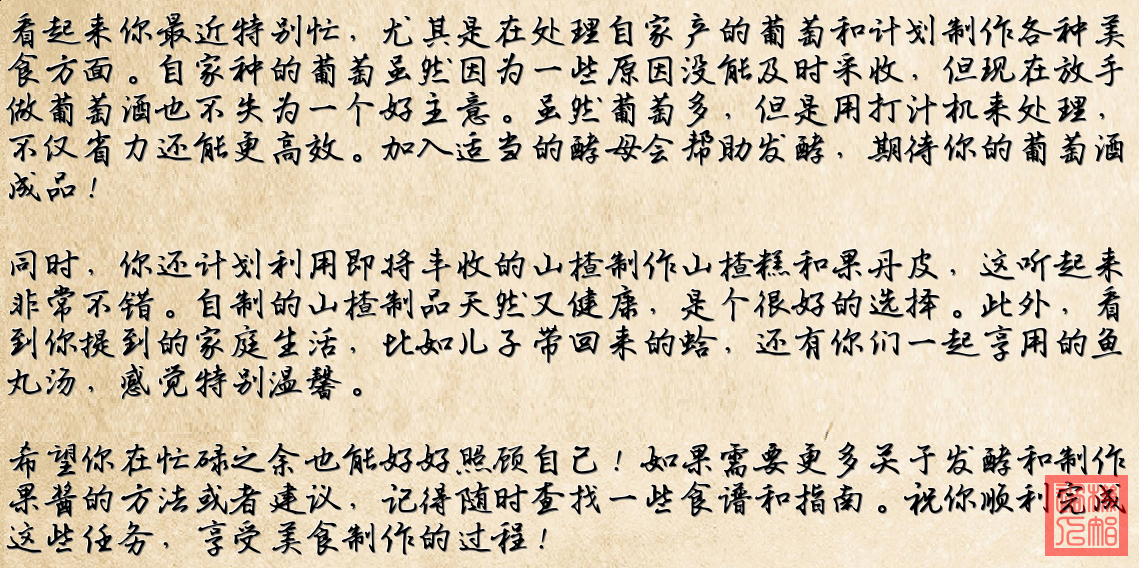 看起来你最近特别忙，尤其是在处理自家产的葡萄和计划制作各种美
食方面。自家种的葡萄虽然因为一些原因没能及时采收，但现在放手
做葡萄酒也不失为一个好主意。虽然葡萄多，但是用打汁机来处理，
不仅省力还能更高效。加入适当的酵母会帮助发酵，期待你的葡萄酒
成品！
同时，你还计划利用即将丰收的山楂制作山楂糕和果丹皮，这听起来
非常不错。自制的山楂制品天然又健康，是个很好的选择。此外，看
到你提到的家庭生活，比如儿子带回来的蛤，还有你们一起享用的鱼
丸汤，感觉特别温馨。
希望你在忙碌之余也能好好照顾自己！如果需要更多关于发酵和制作
果酱的方法或者建议，记得随时查找一些食谱和指南。祝你顺利完成
这些任务，享受美食制作的过程！